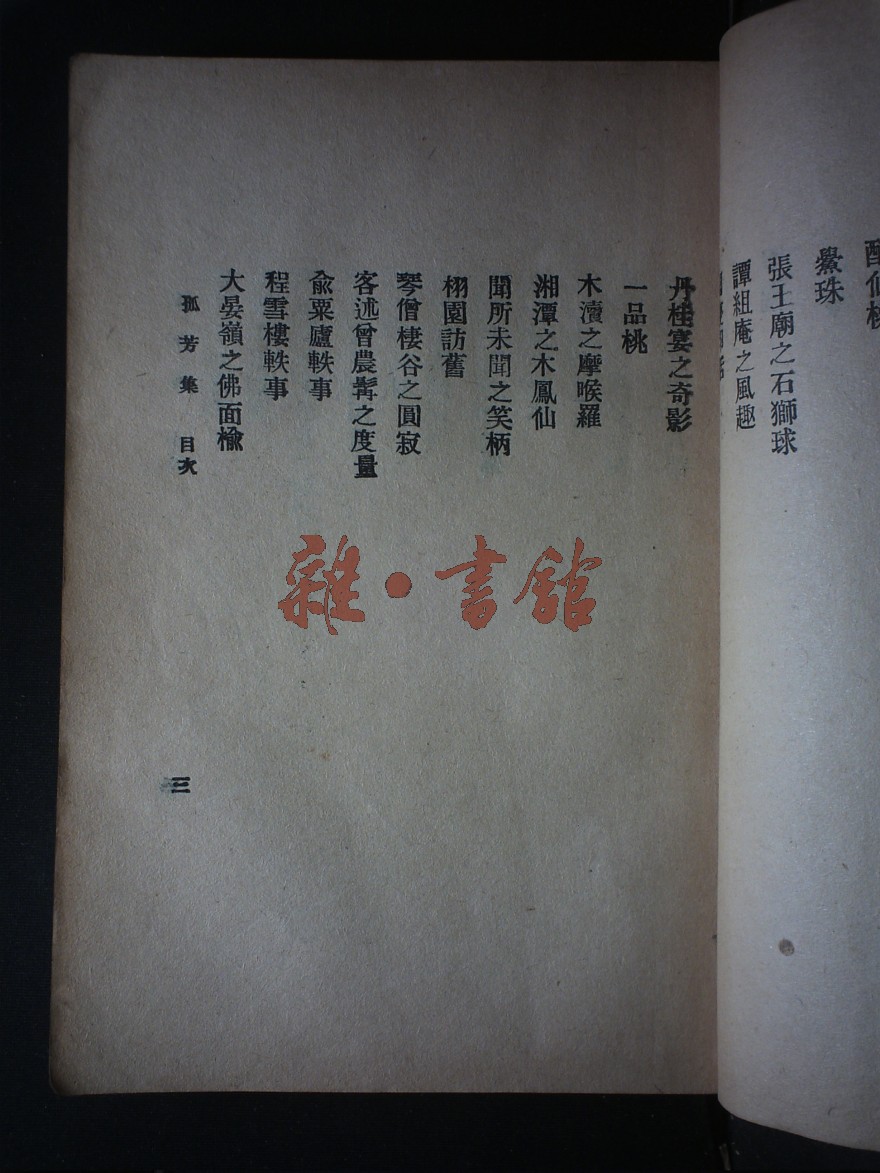 鱟珠
張王廟之石獅球
譚組庵之風趣
丹桂宴之奇影
一品桃
木瀆之摩喉羅
湘潭之木鳳仙
聞所未聞之笑柄
栩園訪舊
琴僧棲谷之圓寂
客述曾農髯之度量
兪粟廬軼事
程雪樓軼事
大晏嶺之佛面楡
孤芳集 目次
三
雜·書館